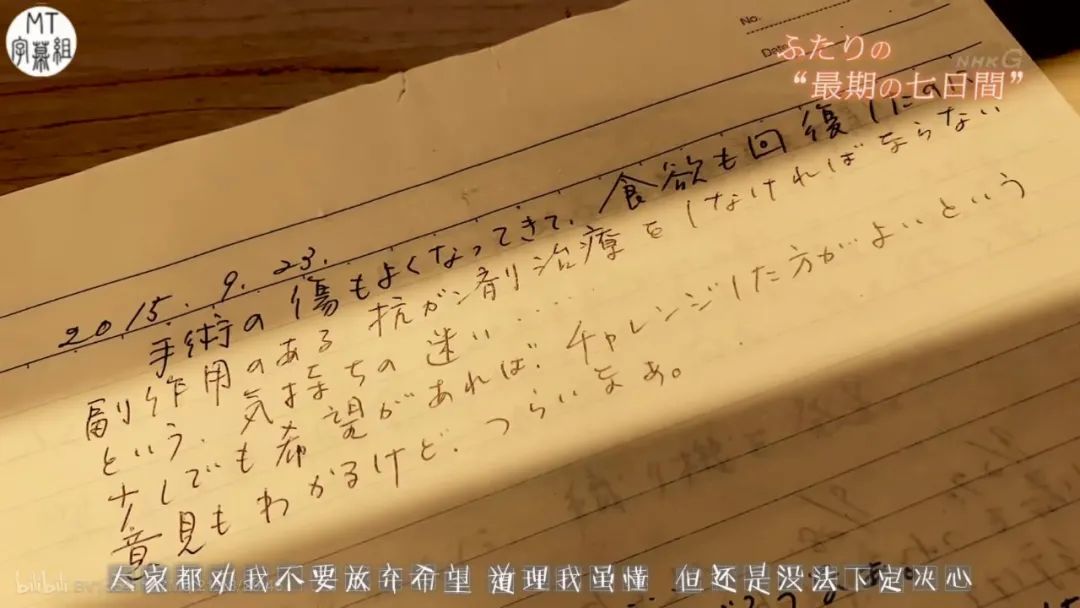 MT
字幕組
No.
Date
NHK G
ふたりの
“最期の七日間”
2015.9.23.
手術の傷もよくなってきて、食欲も回復したのに
副作用のある抗がん剤治療をしなければならない
という、気持ちの迷い.....
少しでも希望があれば、チャレンジした方がよいという
意見もわかるけど、つらいなあ。
bilibili
大家都劝我不要放弃希望 道理我虽懂 但还是没法下定决心